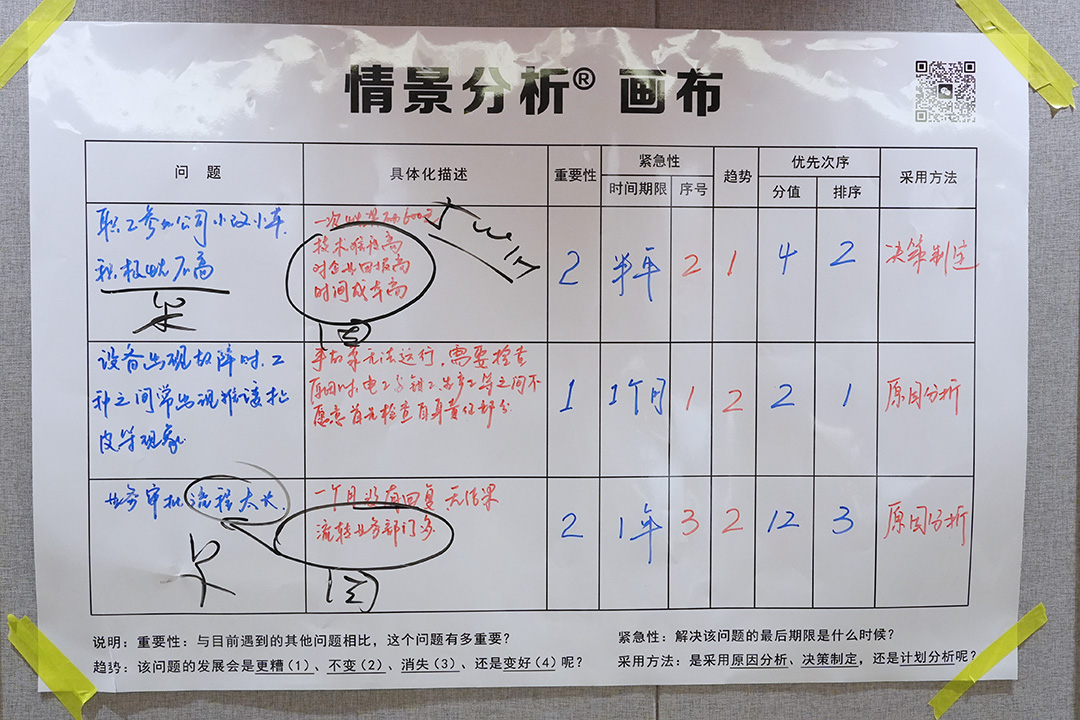 情景分析® 画布
问 题 具体化描述 重要性 紧急性 趋势 优先次序 采用方法
时间期限 序号 分值 排序
职工参加公司小改小革
积极性不高
果
一次性奖励600元
技术难度高
对企业回报高
时间成本高
因
2 半年 2 1 4 2 决策制定
设备出现故障时,工
种之间常出现推诿扯
皮等现象
无法运行,需要检查
原因时,电工与钳工 等之间不
愿意首先检查自身责任部分
1 1个月 1 2 2 1 原因分析
业务审批流程太长
果
一个月没有回复 无结果
流转业务部门多
因
2 1年 3 2 12 3 原因分析
说明:重要性:与目前遇到的其他问题相比,这个问题有多重要?
紧急性:解决该问题的最后期限是什么时候?
趋势:该问题的发展会是更糟(1)、不变(2)、消失(3)、还是变好(4)呢?
采用方法:是采用原因分析、决策制定,还是计划分析呢?